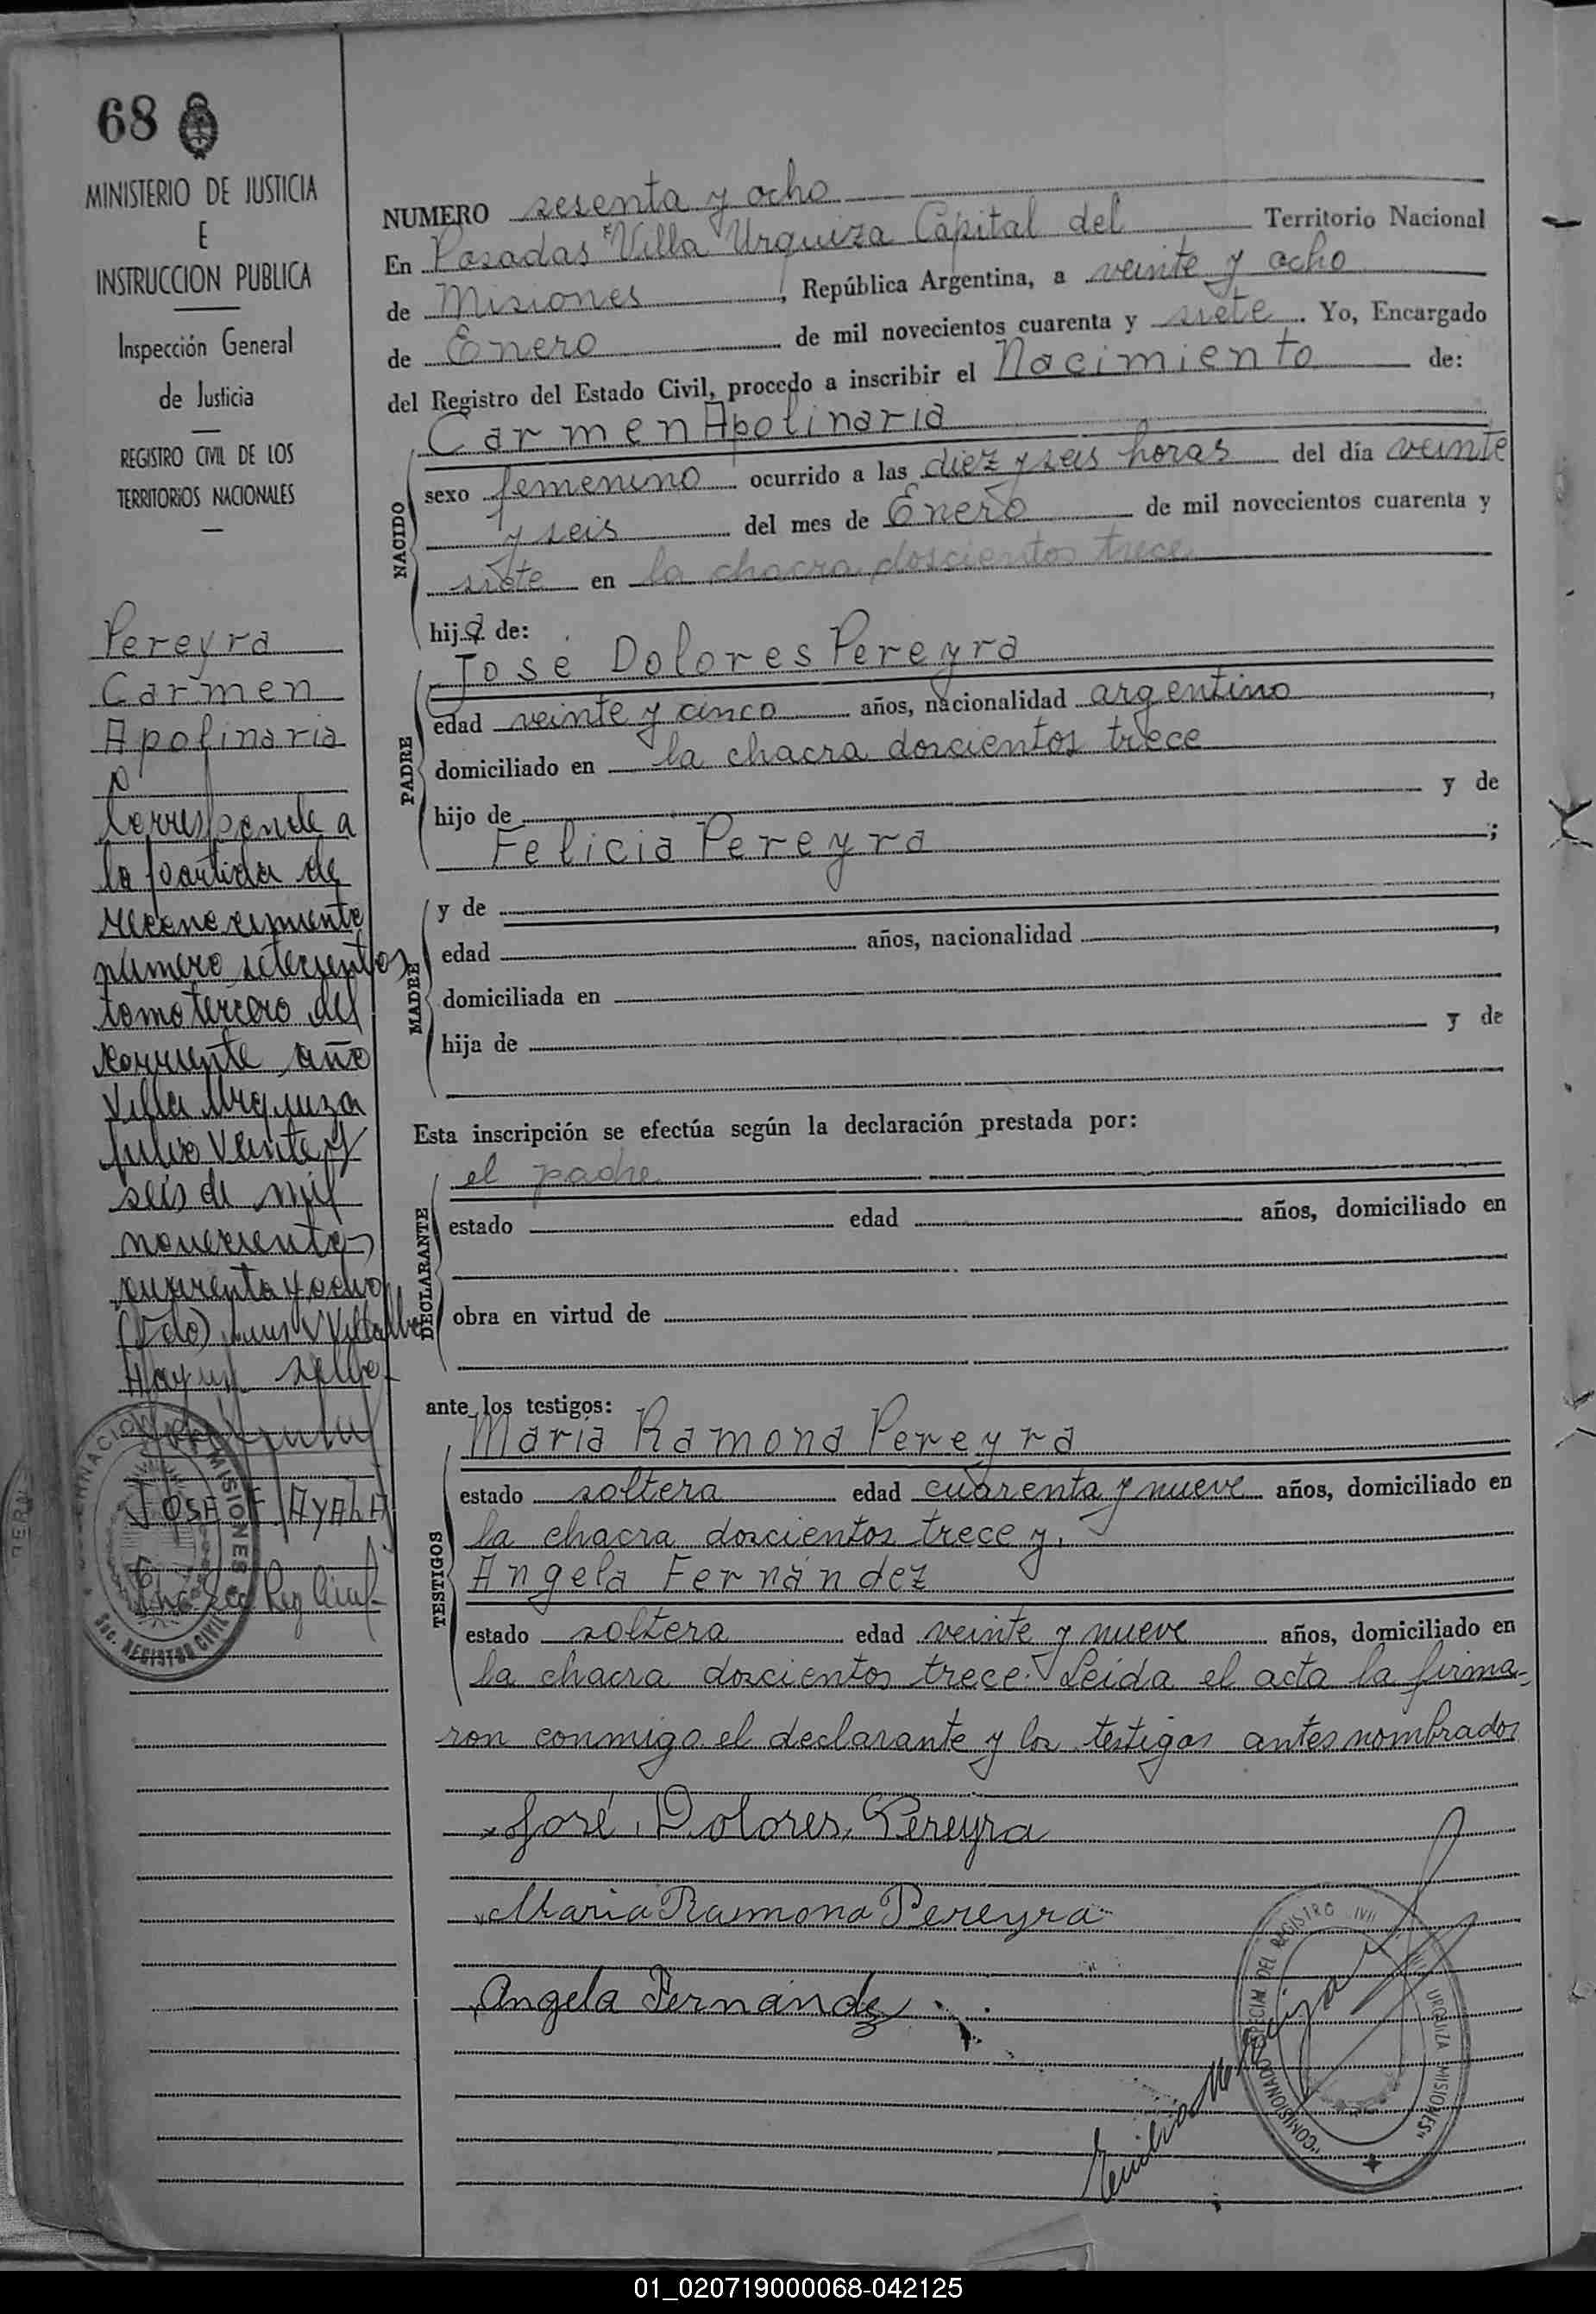 68
MINISTERIO DE JUSTICIA
E
INSTRUCCION PUBLICA
Inspección General
de Justicia
REGISTRO CIVIL DE LOS
TERRITORIOS NACIONALES
Pereyra
Carmen
Apolinaria
Corresponde a
la partida de
reconocimiento
número setecientos
tomo tercero del
corriente año
Villa Urquiza
Julio veinte y
seis de mil
novecientos
cuarenta y ocho
(Fdo) Luis V Villalba
Hay un sello
JOSE F. AYALA
MISIONES
REGISTRO CIVIL
NUMERO sesenta y ocho
En Posadas Villa Urquiza Capital del Territorio Nacional
de Misiones, República Argentina, a veinte y ocho
de Enero de mil novecientos cuarenta y siete. Yo, Encargado
del Registro del Estado Civil, procedo a inscribir el Nacimiento de:
NACIDO
Carmen Apolinaria
sexo femenino ocurrido a las diez y seis horas del día veinte
y seis del mes de Enero de mil novecientos cuarenta y
siete en la chacra doscientos trece
hija de:
PADRE
José Dolores Pereyra
edad veinte y cinco años, nacionalidad argentino,
domiciliado en la chacra doscientos trece
hijo de y de
Felicia Pereyra;
MADRE
y de
edad años, nacionalidad,
domiciliada en
hija de y de
Esta inscripción se efectúa según la declaración prestada por:
DECLARANTE
el padre
estado edad años, domiciliado en
obra en virtud de
ante los testigos:
TESTIGOS
María Ramona Pereyra
estado soltera edad cuarenta y nueve años, domiciliado en
la chacra doscientos trece y.
Angela Fernández
estado soltera edad veinte y nueve años, domiciliado en
la chacra doscientos trece. Leida el acta la firma-
ron conmigo el declarante y los testigos antes nombrados
José Dolores Pereyra
Maria Ramona Pereyra
Angela Fernández
Emilio
COMISIONADO ESPECIAL DEL REGISTRO URQUIZA MISIONES
01_020719000068-042125